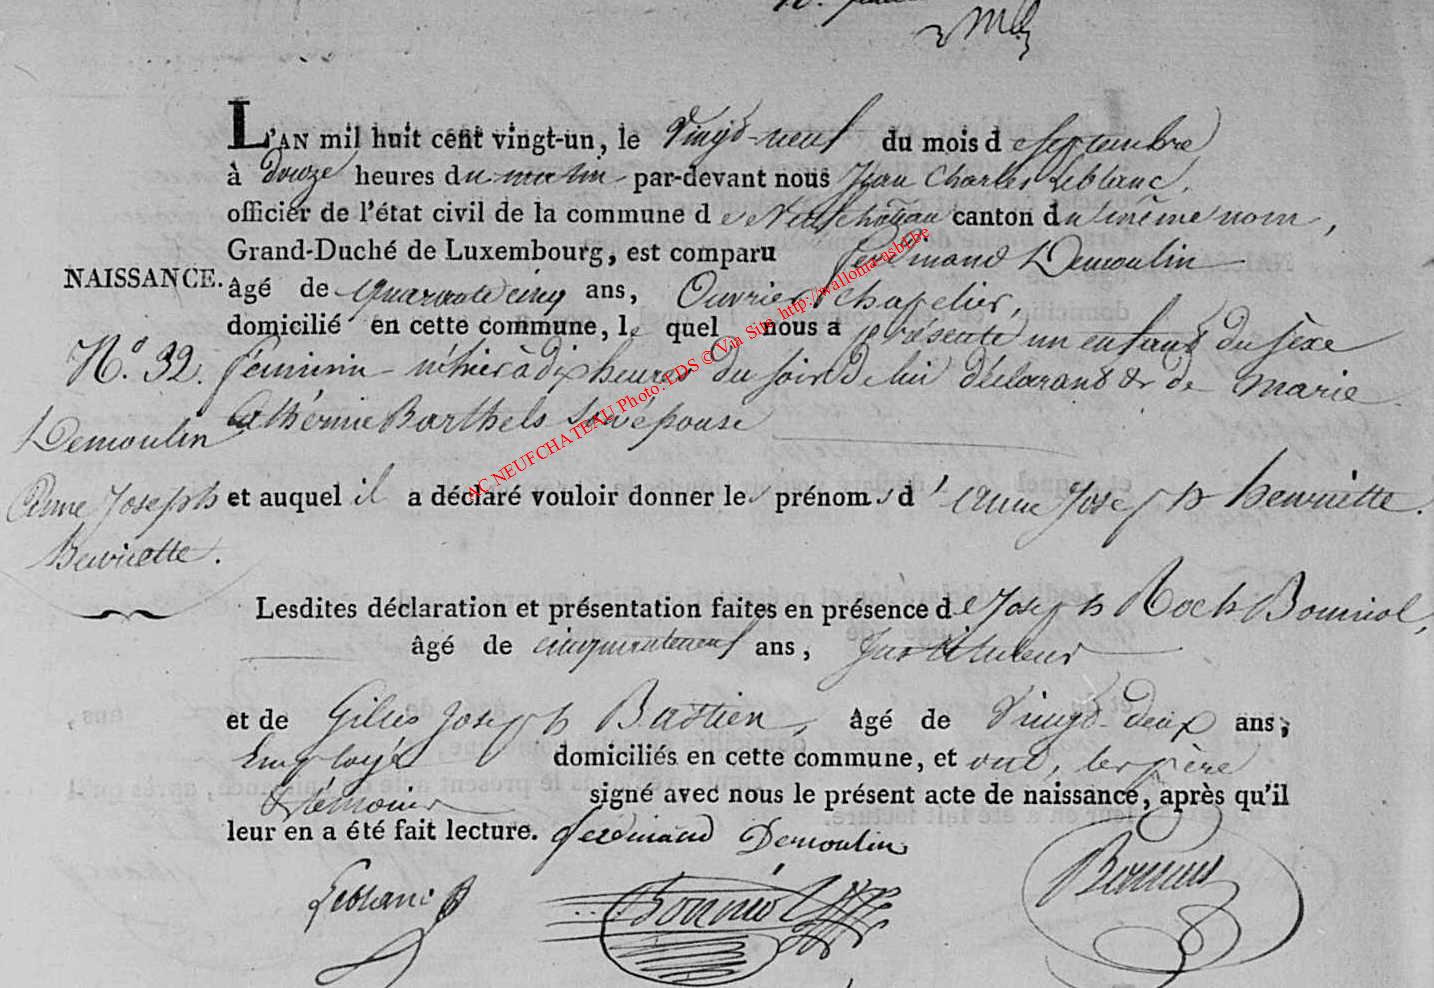 L'AN mil huit cent vingt-un, le Vingt-neuf du mois de septembre
à douze heures du matin par-devant nous Jean Charles Leblanc,
officier de l'état civil de la commune de Neufchateau canton du même nom,
Grand-Duché de Luxembourg, est comparu ferdinand Demoulin
NAISSANCE.
âgé de quarante cinq ans, Ouvrier chapelier,
domicilié en cette commune, le quel nous a présenté un enfant du sèxe
N.o 32. féminin né hier à dix heures du soir de lui déclarant & de Marie
Cathérine Barthels son épouse
Demoulin
Anne Joseph
henriette.
et auquel il a déclaré vouloir donner les prénoms d'anne Joseph henriette.
Lesdites déclaration et présentation faites en présence de Joseph Roch
âgé de cinquante neuf ans, Instituteur
et de Gilles Joseph Bastien, âgé de Vingt-deux ans,
Employé domiciliés en cette commune, et ont, les père
& témoins signé avec nous le présent acte de naissance, après qu'il
leur en a été fait lecture. ferdinand Demoulin
Leblanc
AC NEUFCHATEAU Photo. LDS © Via Site. http://wallonia-asbl.be